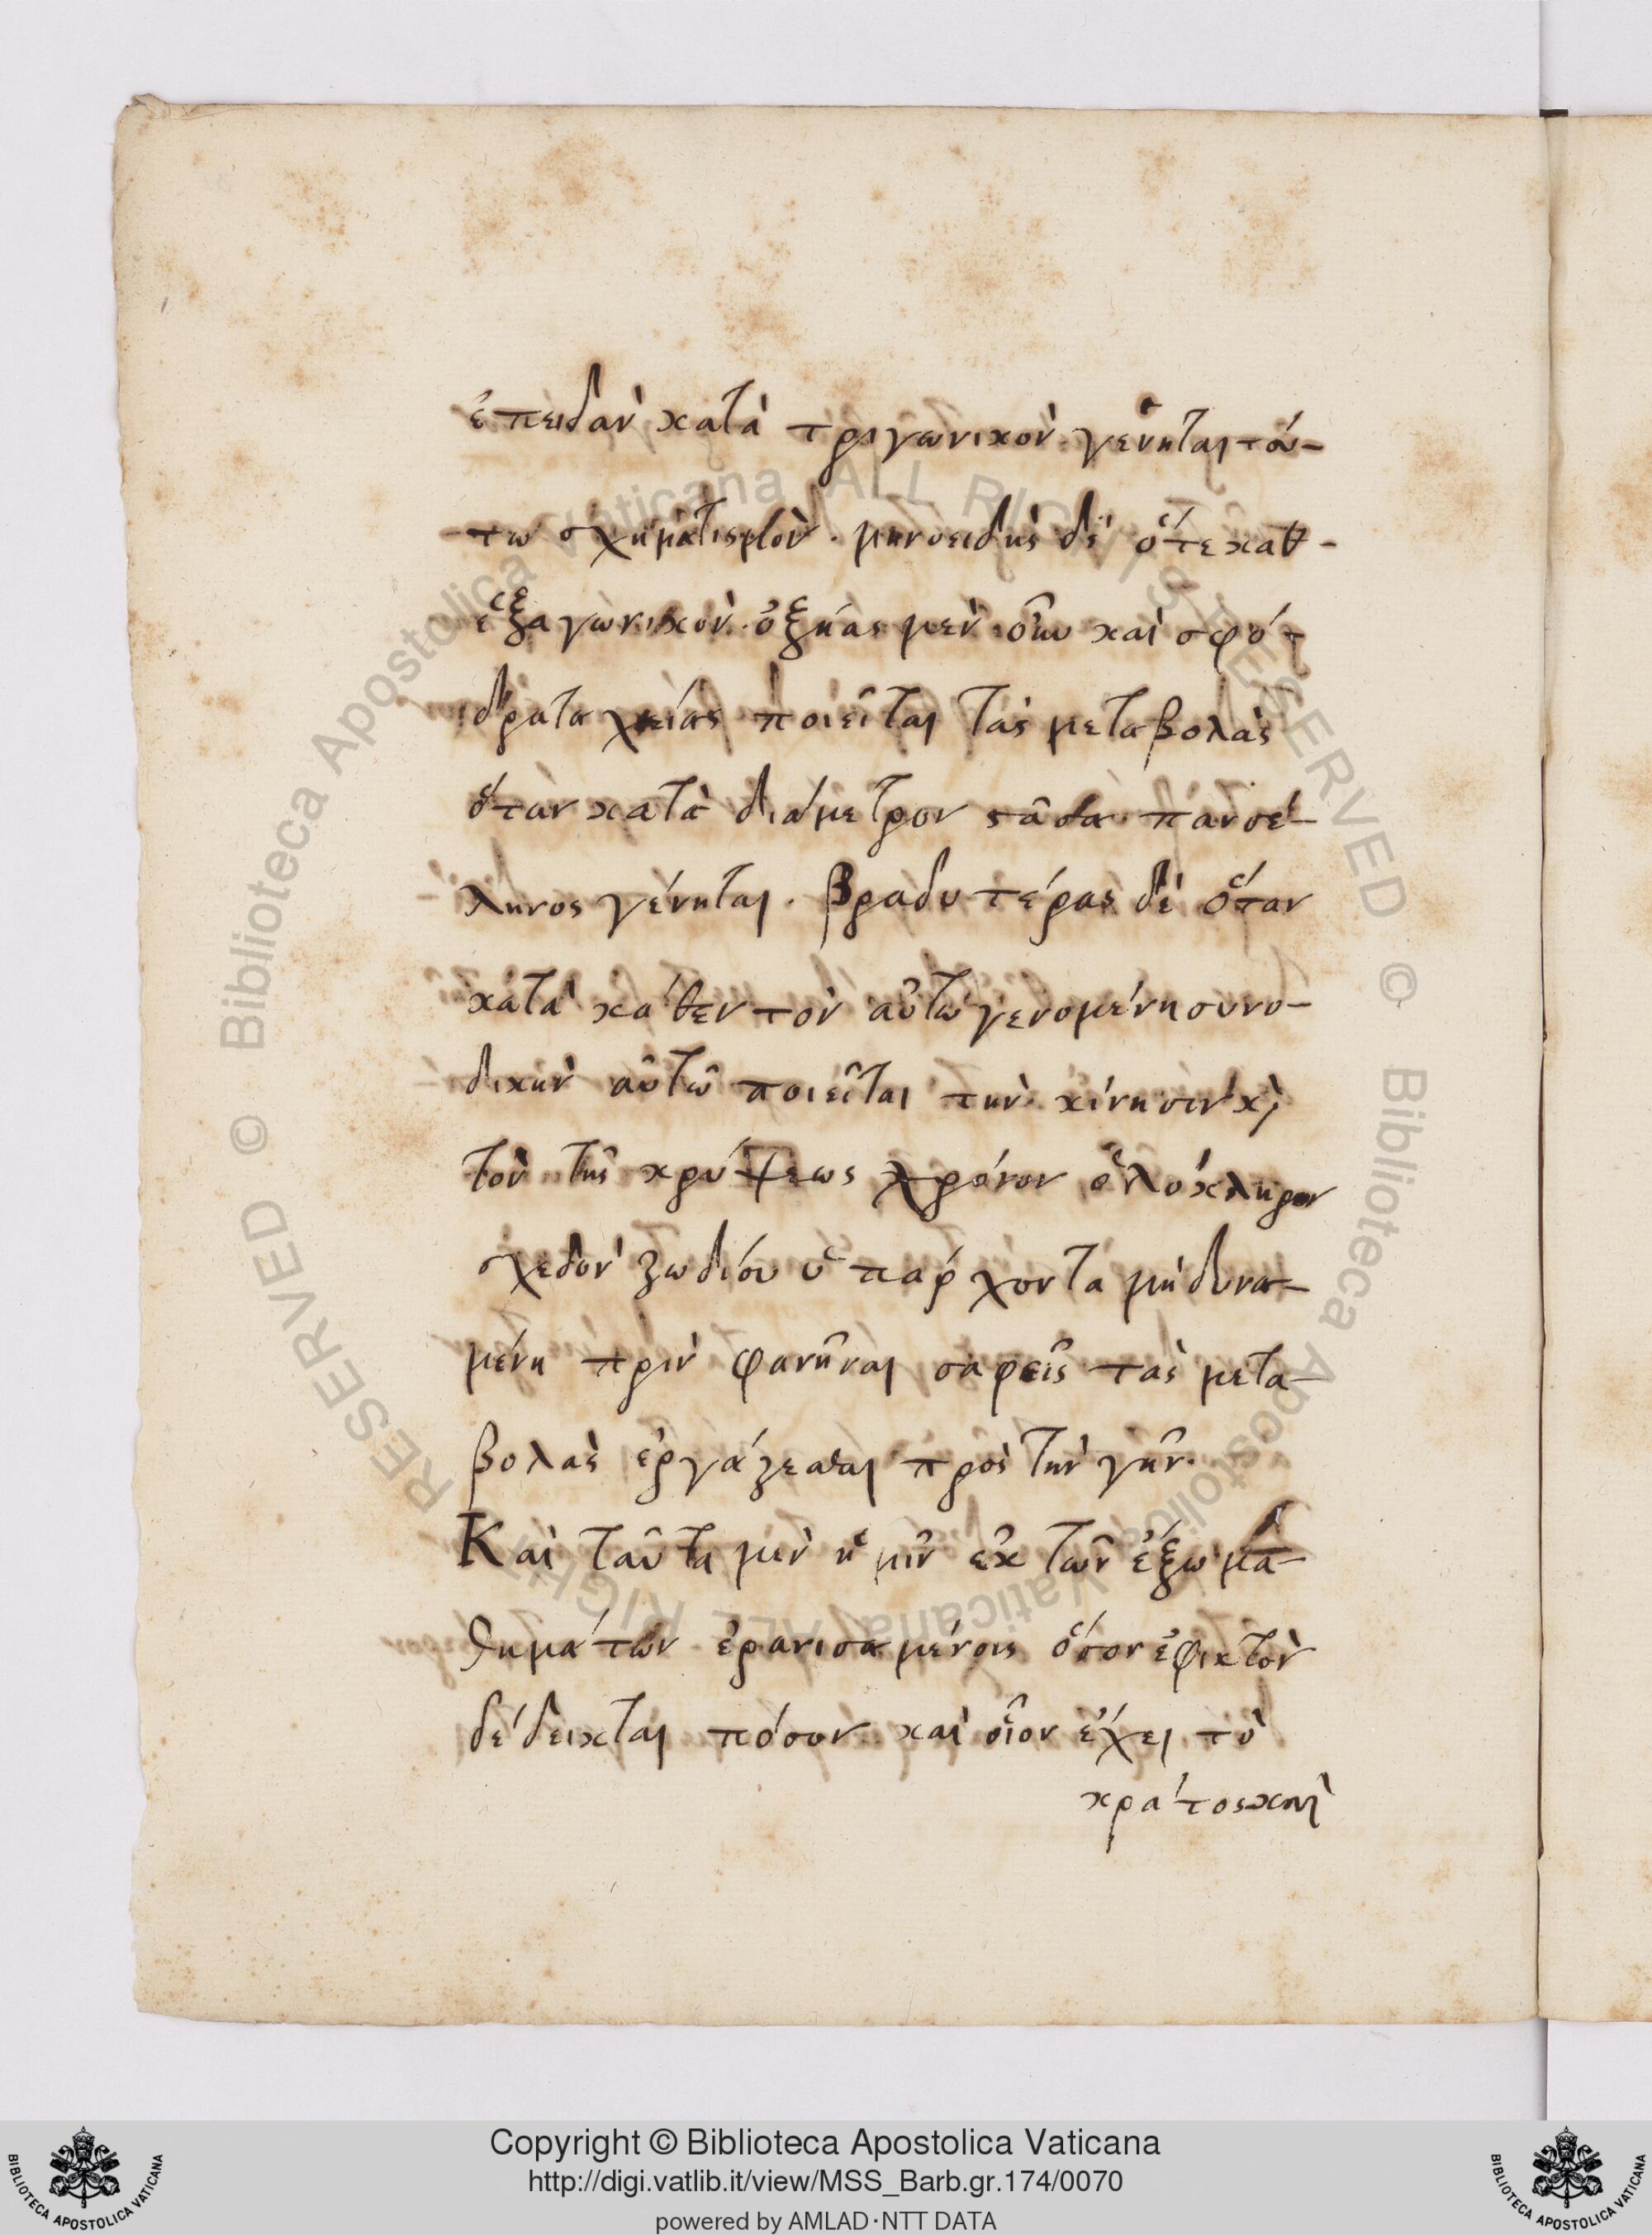 ἐπειδὰν κατὰ τριγωνικὸν γένηται τού-
τω σχηματισμὸν. μηνοειδὴς δὲ ὅτε καθ-
ἑξαγωνικὸν. ὀξήας μὲν οὖν καὶ σφό-
δρα ταχείας ποιεῖται τὰς μεταβολὰς
ὅταν κατὰ διάμετρον στᾶσα πανσέ-
ληνος γένηται. βραδυτέρας δὲ ὅταν
κατὰ κάθεντον αὐτῶ γενομένη συνο-
δικὴν αὐτῶ ποιεῖται τὴν κίνησιν κὶ
τὸν τῆς κρύψεως χρόνον ὁλόκληρον
σχεδὸν ζωδίου ὑπάρχοντα μὴ δυνα-
μένη πρὶν φανῆναι σαφεῖς τὰς μετα-
βολὰς ἐργάζεσθαι πρὸς τὴν γῆν.
Καὶ ταῦτα μὲν ἡμῖν ἐκ τῶν ἔξω μα-
θημάτων ἐρανισαμένοις ὅσον ἐφικτὸν
δέδεικται πόσον καὶ οἷον ἔχει τὸ
κράτος καὶ
Copyright © Biblioteca Apostolica Vaticana
http://digi.vatlib.it/view/MSS_Barb.gr.174/0070
powered by AMLAD·NTT DATA
BIBLIOTECA APOSTOLICA VATICANA
BIBLIOTECA APOSTOLICA VATICANA
© Biblioteca Apostolica Vaticana ALL RIGHTS RESERVED
© Biblioteca Apostolica Vaticana ALL RIGHTS RESERVED